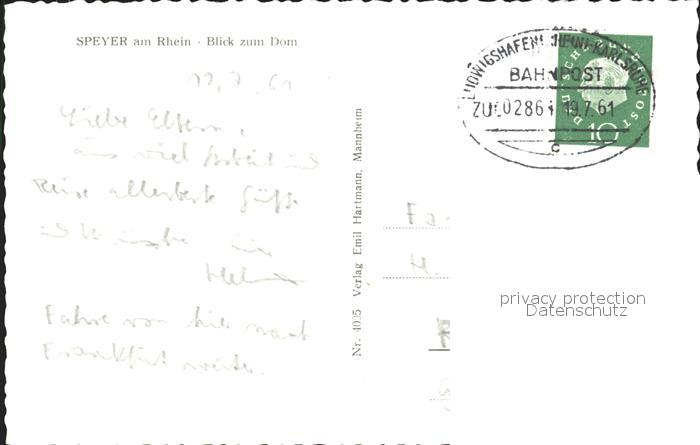 SPEYER am Rhein · Blick zum Dom
19.7.61
Liebe Eltern,
aus viel Arbeit und
Reise allerbeste Grüße
und Wünsche
Helmut
Fahre von hier nach
Frankfurt weiter.
Nr. 4035 Verlag Emil Hartmann, Mannheim
LUDWIGSHAFEN(RHEIN)-KARLSRUHE
BAHNPOST
ZUG02864 19.7.61
c
DEUTSCHE
POST
10
H.
privacy protection
Datenschutz